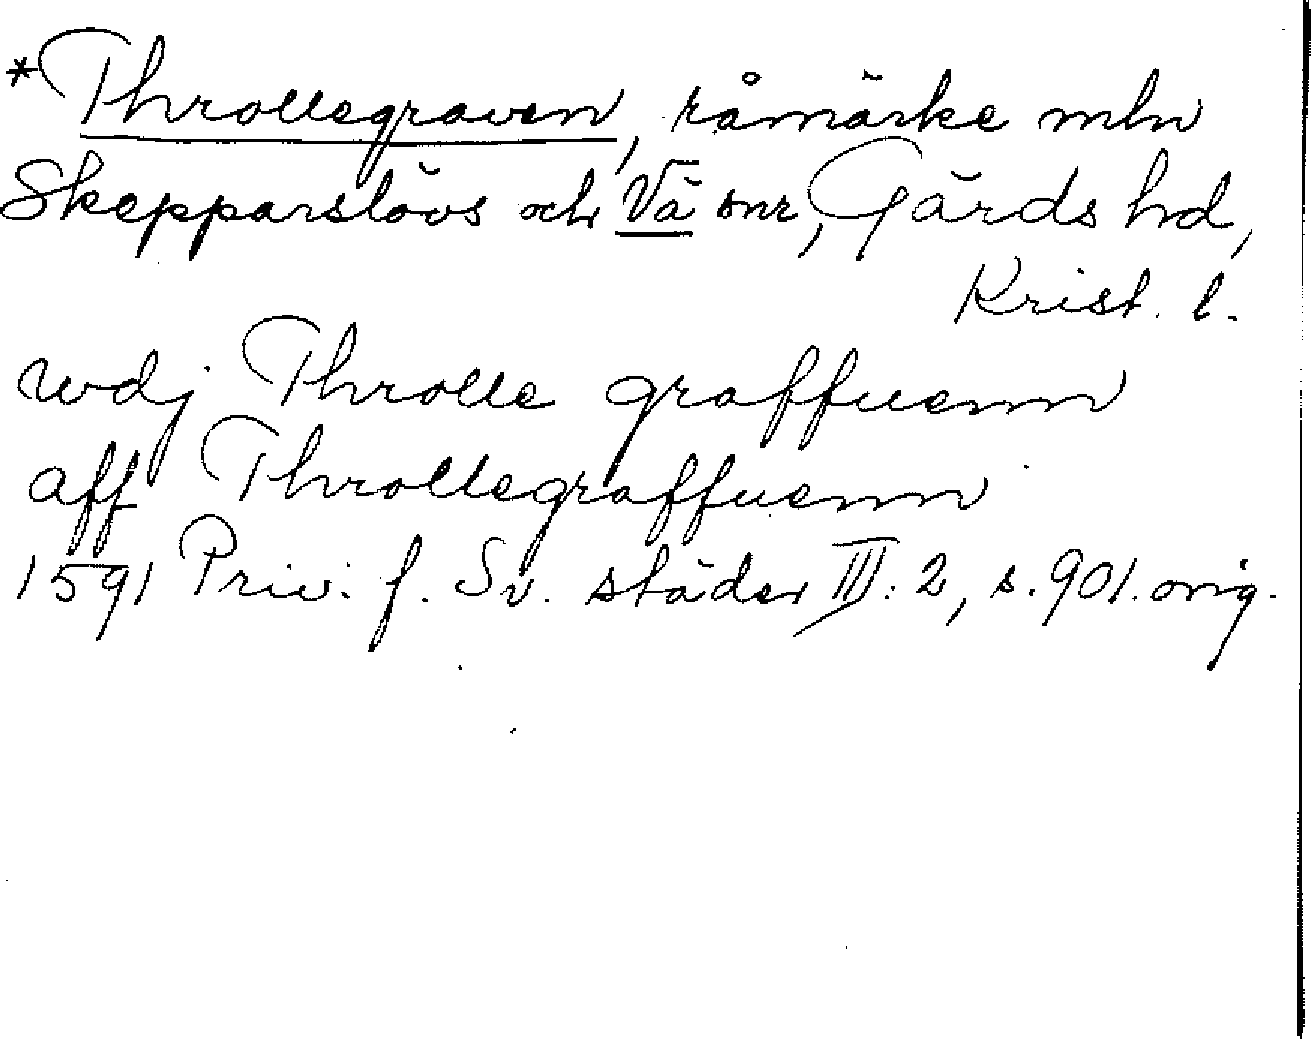 *Throllegraven, råmärke mln
Skepparslövs och Vä snr, Gärds hd,
Krist. l.
wdj Throlle graffuenn
aff Throllegraffuenn
1591 Priv. f. Sv. städer III: 2, s. 901. orig.